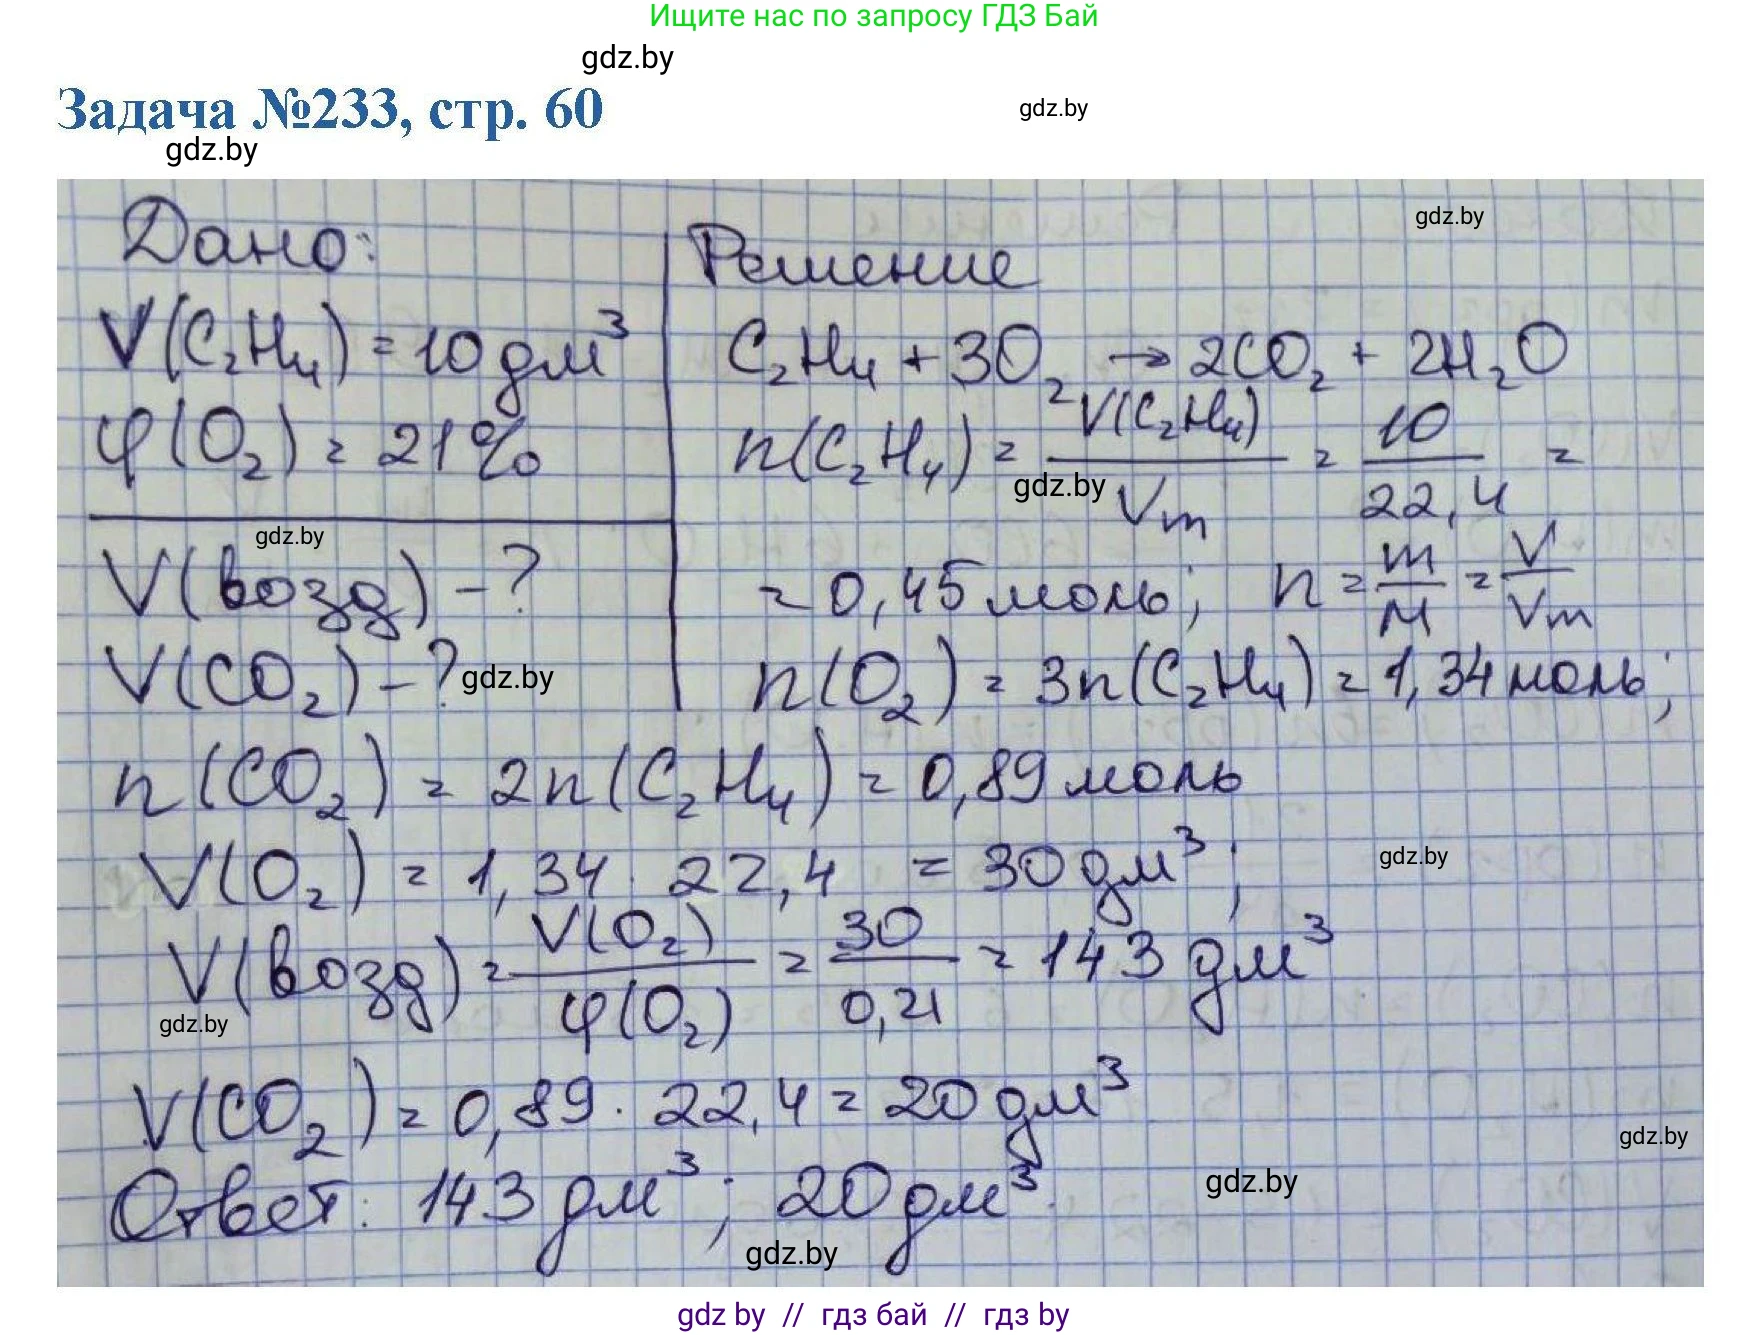 Ищите нас по запросу ГДЗ Бай
gdz.by
Задача №233, стр. 60
gdz.by
gdz.by
gdz.by
Дано:
V(C₂H₄) = 10 дм³
φ(O₂) = 21%
gdz.by
V(возд) - ?
V(CO₂) - ?
gdz.by
Решение
C₂H₄ + 3O₂ → 2CO₂ + 2H₂O
n(C₂H₄) = V(C₂H₄)/Vm = 10/22,4 =
gdz.by
= 0,45 моль; n = m/M = V/Vm
n(O₂) = 3n(C₂H₄) = 1,34 моль;
n(CO₂) = 2n(C₂H₄) = 0,89 моль
V(O₂) = 1,34 · 22,4 = 30 дм³;
gdz.by
V(возд) = V(O₂)/φ(O₂) = 30/0,21 = 143 дм³
gdz.by
V(CO₂) = 0,89 · 22,4 = 20 дм³
gdz.by
Ответ: 143 дм³; 20 дм³.
gdz.by
gdz.by
gdz by // гдз бай // гдз by